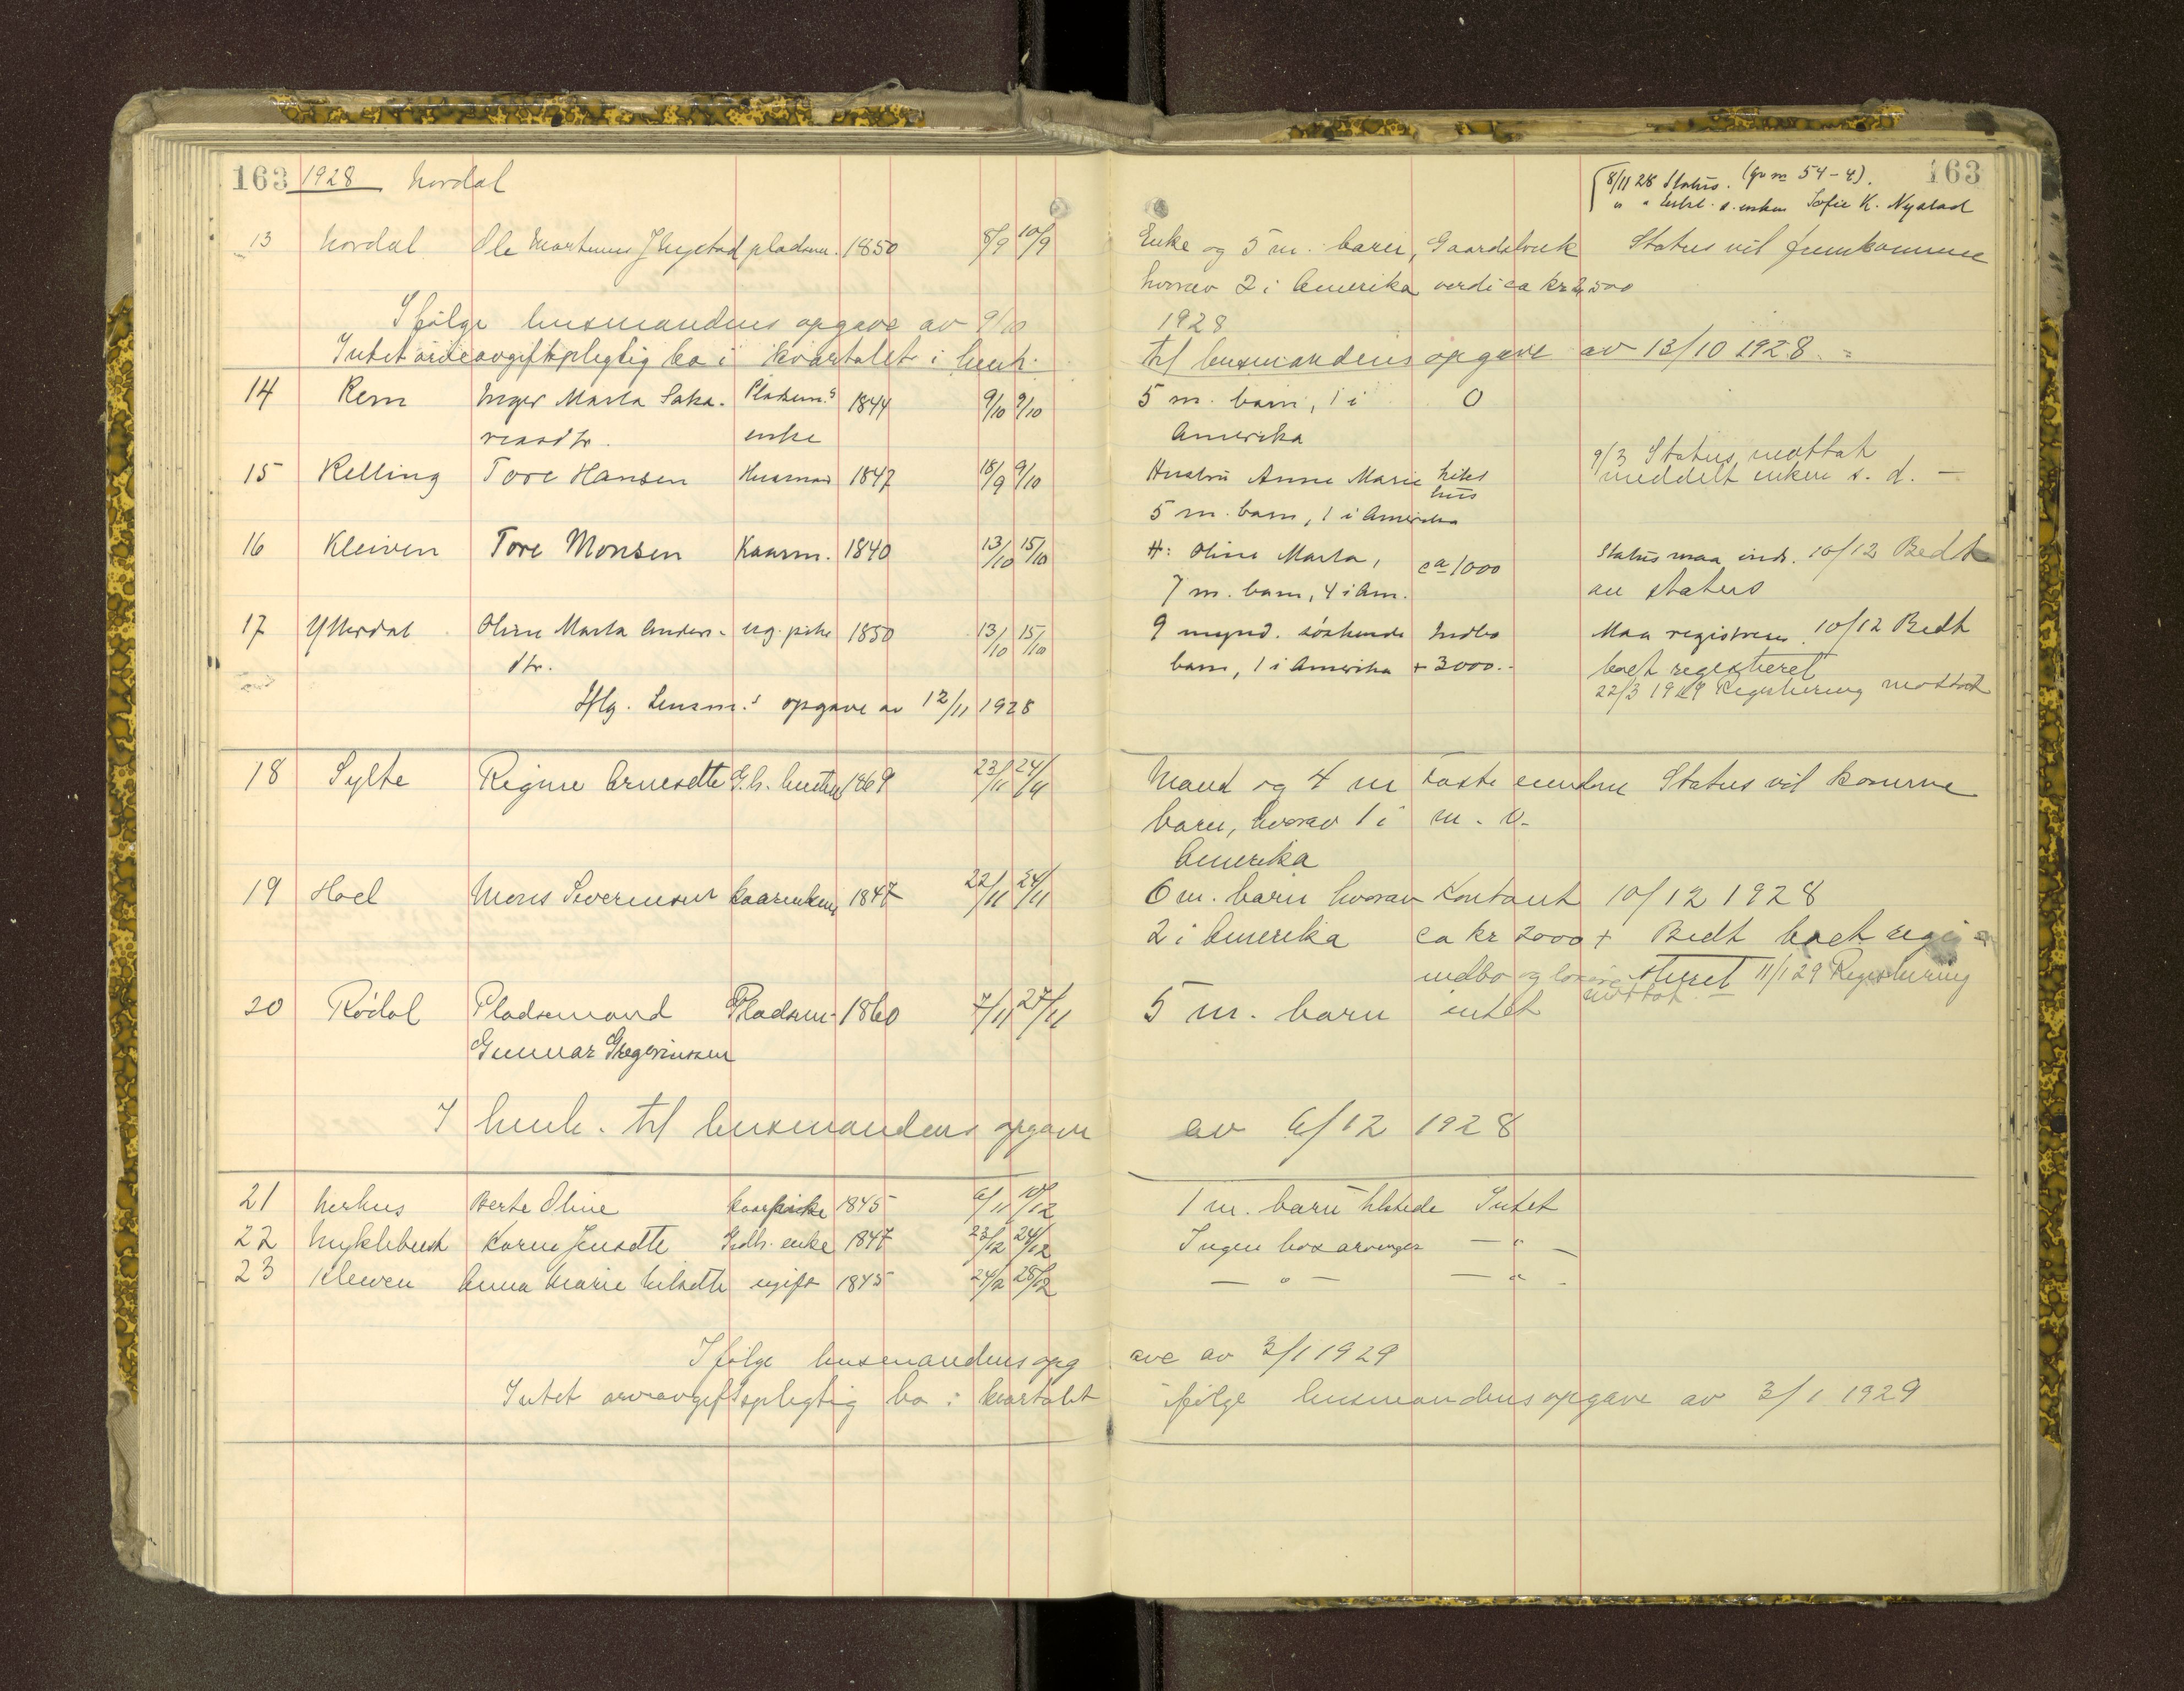 163 1928 Nordal
163
8/11 28 Status. (gr m 54-4).
" " d. enken Sofie K. Nystad
13 Nordal Ole Martinus J Nystad pladsm. 1850 8/9 10/9 Enke og 5 m. barn, Gaardsbruk Status vil fremkomme
hvorav 2 i Amerika verdi ca kr 2,500
Ifølge lensmandens opgave av 9/10 1928
Intet arveavgiftspligtig bo i kvartalet i henh. til lensmandens opgave av 13/10 1928. =
14 Rem Inger Marta Saka- Pladsm.s 1844 9/10 9/10 5 m. barn, 1 i 0
riasdtr. enke Amerika
9/3 Status mottat
15 Relling Tore Hansen Husmand 1847 18/9 9/10 Hustru Anne Marie litet meddelt enken s. d. -
hus
5 m. barn, 1 i Amerika
16 Kleiven Tore Monsen Kaarm. 1840 13/10 15/10 H: Oline Marta, ca 1000 Status maa inds. 10/12 Bedt
7 m. barn, 4 i Am. om status
17 Ytterdal Oline Marta Anders- ug. pike 1850 13/10 15/10 9 mynd. søskende Indbo Maa registreres 10/12 Bedt
dtr. barn, 1 i Amerika + 3000.- boet registreret
22/3 1929 Registrering mottat
Iflg. Lensm.s opgave av 12/11 1928
18 Sylte Regine Arnesdtr G.b. hustru 1869 23/11 24/11 Mand og 4 m Faste eiendom Status vil komme
barn, hvorav 1 i m. v.
Amerika
19 Hoel Mons Severinsen kaarenkem. 1847 22/11 24/11 6 m. barn hvorav Kontant 10/12 1928
2 i Amerika ca kr 2000 + Bedt boet regi-
indbo og løsøre streret 11/1 29 Registrering
mottat
20 Rødal Pladsmand Pladsm. 1860 7/11 27/11 5 m. barn intet
Gunnar Gregoriussen
I henh. til lensmandens opgave av 6/12 1928
21 Nerhus Berte Oline kaarpike 1845 6/11 10/12 1 m. barn tilstede Intet
22 Myklebust Karen Jensdtr Gdb. enke 1847 23/12 24/12 Ingen hos arvinger - " -
23 Kleiven Anna Marie Nilsdtr ugift 1845 24/12 28/12 - " - - " -
Ifølge lensmandens opgave av 3/1 1929
Intet arveavgiftspligtig bo i kvartalet ifølge lensmandens opgave av 3/1 1929